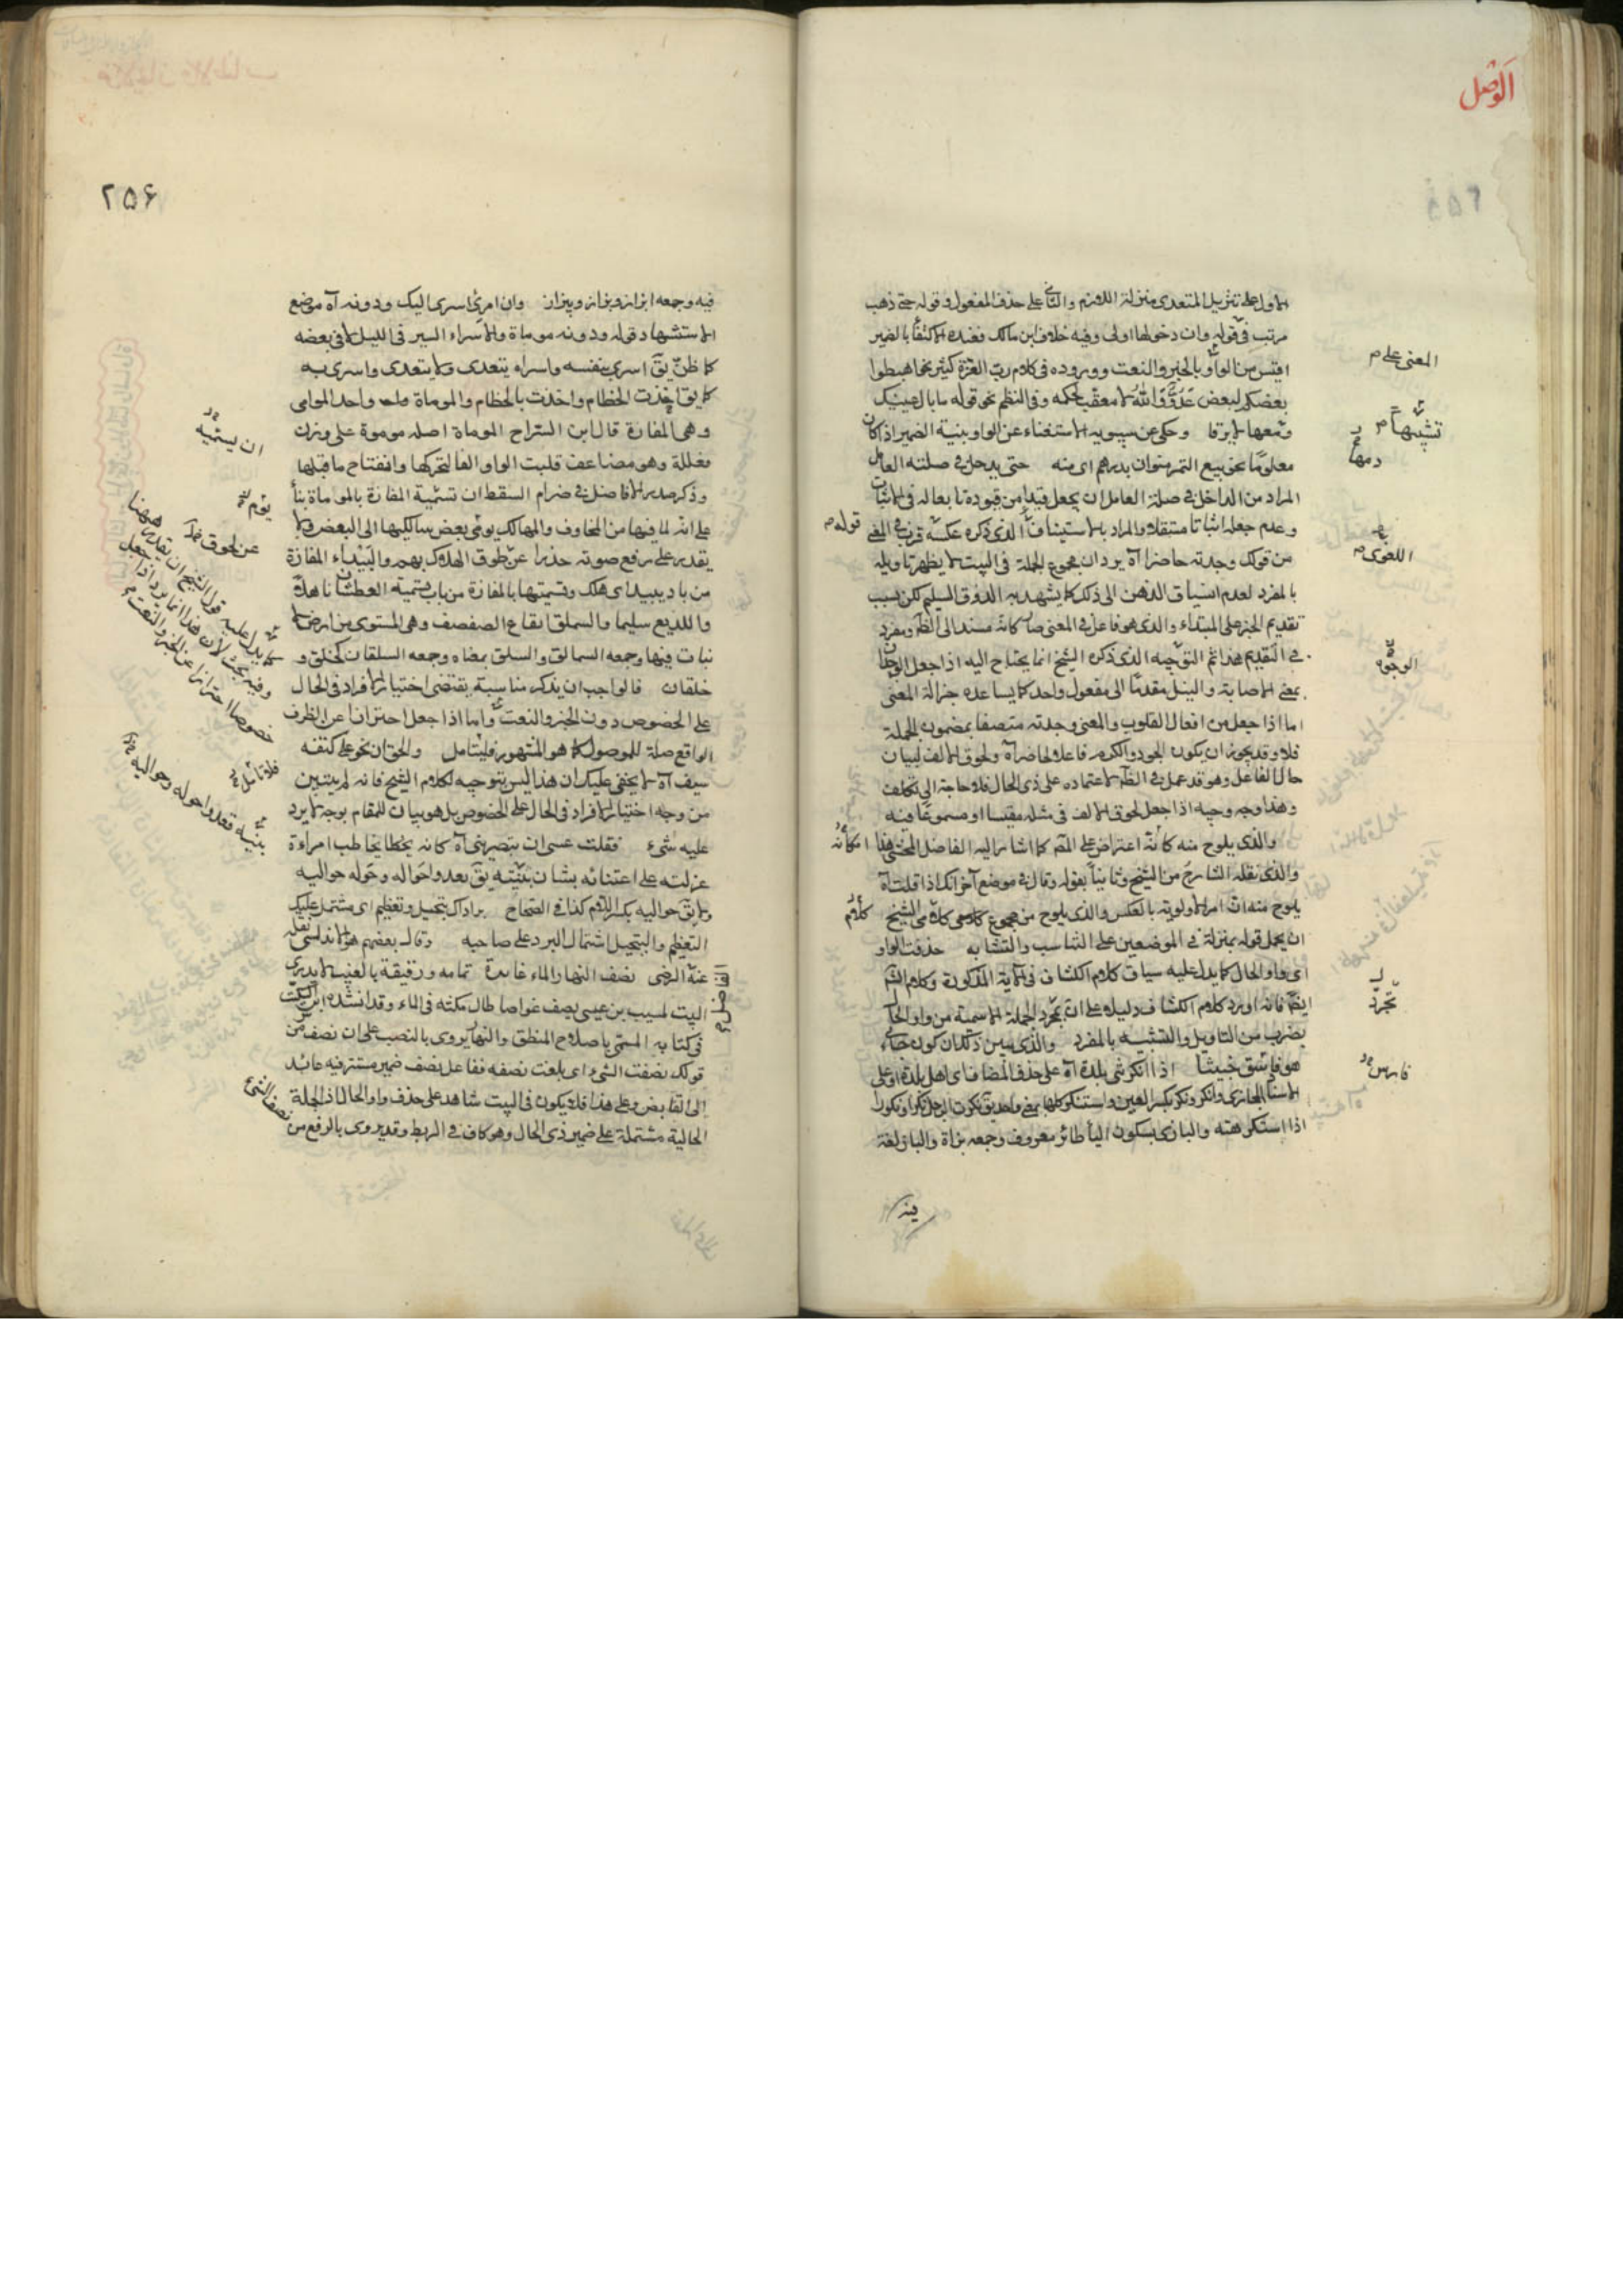 الوصل
الاول على تنزيل المتعدى منزلة اللازم والثانى على حذف المفعول وقوله حتى ذهب
مرتب فى قوله وان دخولها اولى وفيه خلاف ابن مالك فعنده الاكتفا بالضمير
اقيس من الواو بالخبر والنعت ووروده فى كلام رب العزة كثير نحو اهبطوا
بعضكم لبعض عدو والله لا معقب لحكمه وفى النظم نحو قوله ما بال عينيك
ودمعها لا يرقا وحكى عن سيبويه الاستغناء عن الواو بنية الضمير اذا كان
معلوما نحو بيع التمر منوان بدرهم اى منه حتى يدخل فى صلته العامل
المراد من الداخل فى صلة العامل ان يجعل قيدا من قيوده تابعا له فى الاثبات
وعدم جعله اثباتا مستقلا والمراد بالاستيناف الذى ذكره عكسه
من قولك وجدته حاضرا آه يرد ان مجموع الجملة فى البيت لا يظهر تاويله
بالمفرد لعدم انسياق الذهن الى ذلك كما يشهد به الذوق السليم لكن بسبب
تقديم الخبر على المبتداء والذى هو فاعل فى المعنى صار كانه مسند الى الظاهر ومفرد
فى التقديم هذا ثم التوجيه الذى ذكره الشيخ انما يحتاج اليه اذا جعل الوجدان
بمعنى الاصابة والنيل مقدما الى مفعول واحد كما يساعده جزالة المعنى
اما اذا جعل من افعال القلوب والمعنى وجدته متصفا بمضمون الجملة
فلا وقد يجوز ان يكون الجود والكرم فاعلا لحاضرا ولحوق الالف لبيان
حال الفاعل وهو قد عمل فى الظاهر لاعتماده على ذى الحال فلا حاجة الى تكلف
وهذا وجه وجيه اذا جعل لحوق الالف فى مثله مقيسا او مسموعا فيه
والذى يلوح منه كانه اعتراض على المصـ كما اشار اليه الفاضل المحشى
والذى نقله الشارح من الشيخ وثانيا بقوله وقال فى موضع آخر انك اذا قلت آه
يلوح منه ان امر الاولوية بالعكس والذى يلوح من مجموع كلامى الشيخ
ان يحمل قوله بمنزلة فى الموضعين على التناسب والتشابه حذفت الواو
اى واو الحال كما يدل عليه سياق كلام الكشاف فى الآية المذكورة وكلام الشـ
ايضا فانه اورد كلام الكشاف دليلا على ان تجرد الجملة الاسمية من واو الحال
بضرب من التاويل والتشبيه بالمفرد والذى يبين ذلك ان كونه
هو فاسق خبيثا اذا انكرتنى بلدة آه على حذف المضاف اى اهل بلدة او على
الاسناد المجازى وانكر ونكر بكسر العين واستنكر كلها بمعنى واحد يق نكرت الرجل نكرا ونكورا
اذا استكرهته والبازى بسكون اليا طائر معروف وجمعه بزاة والباز لغة
فيه
المعنى على
تشبيها
دمعها
قوله
اللغوى
الوجوه
كلام
تجرد
فارس
٢٥۶
فيه وجمعه ابزاز وبزان وبيزان وان امرئ اسرى اليك ودونه آه موضع
الاستشهاد قوله ودونه موماة والاسراء السير فى الليل لا فى بعضه
كما ظن يق اسرى بنفسه واسراه يتعدى ولا يتعدى واسرى به
كما يق اخذت الخطام واخذت بالخطام والموماة واحد الموامى
وهى المفازة قال ابن السراج الموماة اصله موموة على وزن
فعللة وهو مضاعف قلبت الواو الفا لتحركها وانفتاح ما قبلها
وذكر صدر الافاضل فى ضرام السقط ان تسمية المفازة بالموماة بنأ
على انه لما فيها من المخاوف والمهالك يومى بعض سالكيها الى البعض ولا
يقدر على رفع صوته حذرا عن طوق الهلاك بهم والبيداء المفازة
من باد يبيد اى هلك وتسميتها بالمفازة من باب تسمية العطشان ناهلا
واللديغ سليما والسملق القاع الصفصف وهى المستوى من ارض لا
نبات فيها وجمعه السمالق والسلق بمعناه وجمعه السلقان كخلق و
خلقان فالواجب ان يذكر مناسبة يقتضى اختيار الافراد فى الحال
على الخصوص دون الخبر والنعت واما اذا جعل احترازا عن الظرف
الواقع صلة للموصول كما هو المشهور فليتامل والحق ان نحو على كتفه
سيف آه لا يخفى عليك ان هذا ليس بتوجيه لكلام الشيخ فانه لم يتبين
من وجه اختيار الافراد فى الحال على الخصوص بل هو بيان للمقام بوجه لا يرد
عليه شىء فقلت عسى ان تبصرينى آه كانه يخطا يخاطب امراءة
عزلته على اعتنائه بشان بنيته يق بعد واحواله وحوله حواليه
ولا يق حواليه بكسر اللام كذا فى الصحاح برداك تبجيل وتعظيم اى مشتمل عليك
التعظيم والتبجيل اشتمال البرد على صاحبه وقال بعضهم هو الاندلسى نقله
عنه الرضى نصف النهار الماء غامره تمامه ورفيقه بالغيب لا يدرى
البيت لمسيب بن عيسى يصف غواصا طال مكثه فى الماء وقد انشده ابن السكيت
فى كتابه المسمى باصلاح المنطق والنهار يروى بالنصب على ان نصف من
قولك نصفت الشىء اى بلغت نصفه ففاعل نصف ضمير مستتر فيه عائد
الى القابض وعلى هذا فلا يكون فى البيت شاهد على حذف واو الحال اذ الجملة
الحالية مشتملة على ضمير ذى الحال وهو كاف فى الربط وقد يروى بالرفع من
ان يسميه
عن لحوق
كما يدل عليه قول الشيخ ان يقدر ههنا
وفيه بحث لان هذا انما يرد اذا جعل
خصوصا احترازا عن الخبر والنعت
فلا تامل
بنيه قعدوا حوله وحواليه
الفاضل
نصف الشئ